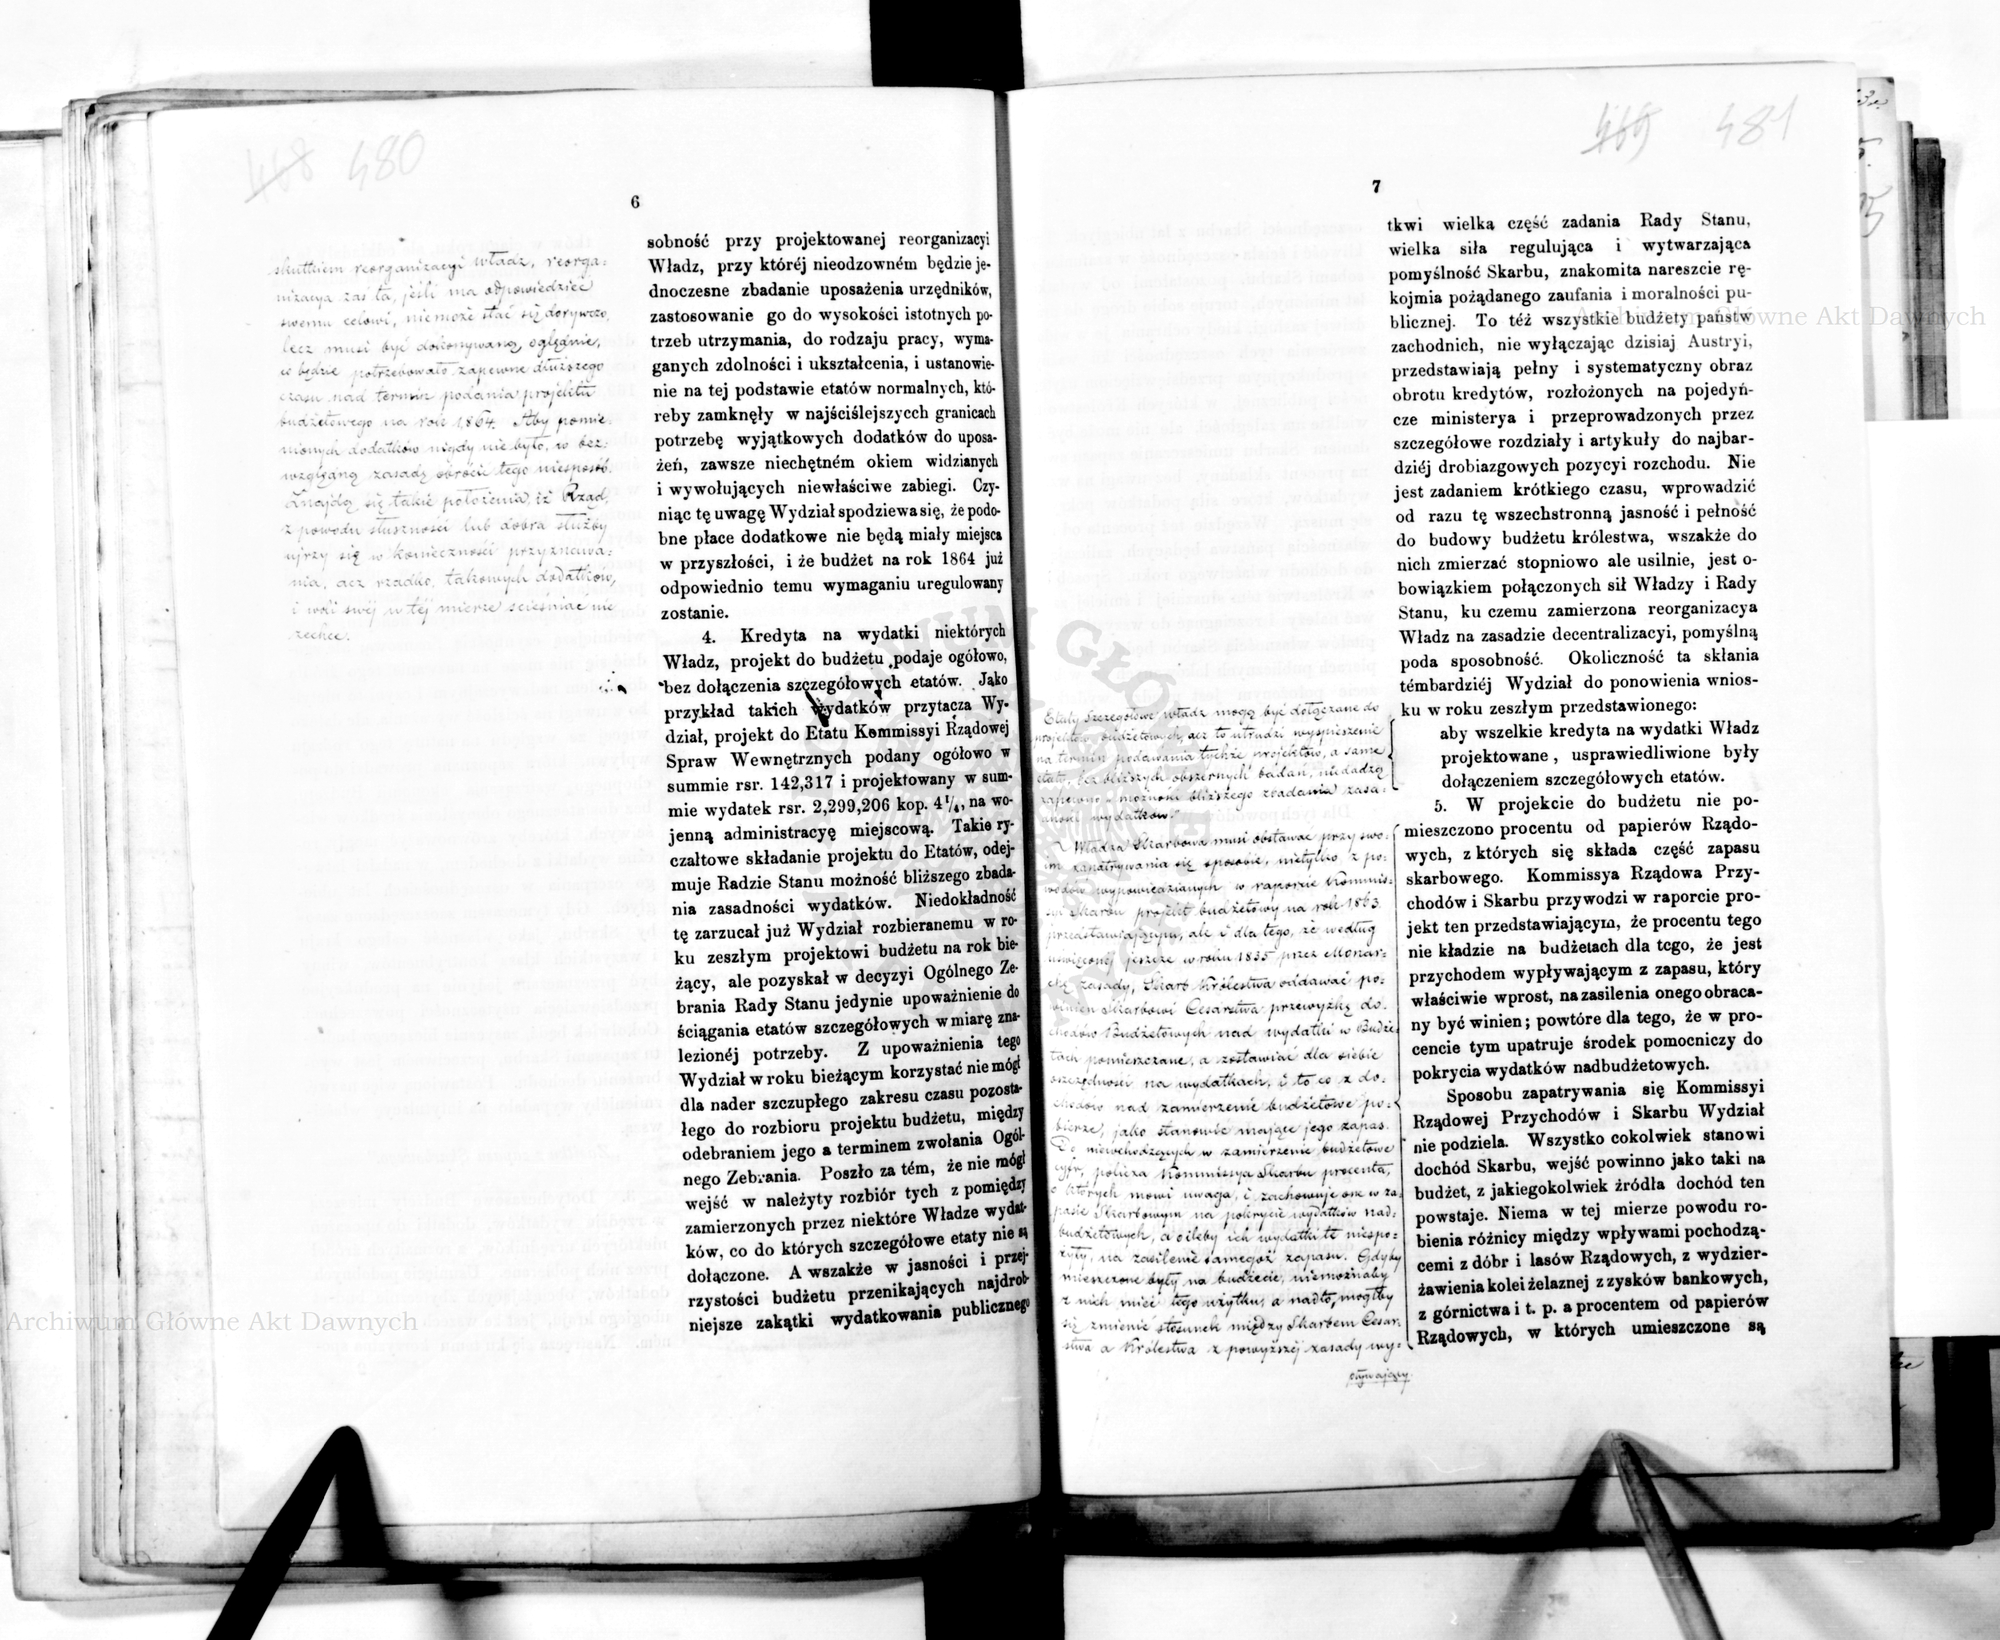 480
6
skutkiem reorganizacyi władz, reorga-
nizacya zaś ta, jeśli ma odpowiedzieć
swemu celowi, niemoże stać się dorywczo,
lecz musi być dokonywaną oględnie,
co będzie potrzebowało zapewne dłuższego
czasu nad termin podania projektu
budżetowego na rok 1864. Aby pomie-
nionych dodatków nigdy nie było, w bez-
względną zasadę obrócić tego niesposób.
Znajdą się takie położenia, iż Rząd,
z powodu słuszności lub dobra służby
ujrzy się w konieczności przyznawa-
nia, acz rzadko, takowych dodatków,
i woli swéj w téj mierze ścieśniać nie
zechce.
sobność przy projektowanej reorganizacyi
Władz, przy któréj nieodzowném będzie je-
dnoczesne zbadanie uposażenia urzędników,
zastosowanie go do wysokości istotnych po-
trzeb utrzymania, do rodzaju pracy, wyma-
ganych zdolności i ukształcenia, i ustanowie-
nie na tej podstawie etatów normalnych, któ-
reby zamknęły w najściślejszycch granicach
potrzebę wyjątkowych dodatków do uposa-
żeń, zawsze niechętném okiem widzianych
i wywołujących niewłaściwe zabiegi. Czy-
niąc tę uwagę Wydział spodziewa się, że podo-
bne płace dodatkowe nie będą miały miejsca
w przyszłości, i że budżet na rok 1864 już
odpowiednio temu wymaganiu uregulowany
zostanie.
4. Kredyta na wydatki niektórych
Władz, projekt do budżetu podaje ogółowo,
bez dołączenia szczegółowych etatów. Jako
przykład takich wydatków przytacza Wy-
dział, projekt do Etatu Kommissyi Rządowej
Spraw Wewnętrznych podany ogółowo w
summie rsr. 142,317 i projektowany w sum-
mie wydatek rsr. 2,299,206 kop. 4¼, na wo-
jenną administracyę miejscową. Takie ry-
czałtowe składanie projektu do Etatów, odej-
muje Radzie Stanu możność bliższego zbada-
nia zasadności wydatków. Niedokładność
tę zarzucał już Wydział rozbieranemu w ro-
ku zeszłym projektowi budżetu na rok bie-
żący, ale pozyskał w decyzyi Ogólnego Ze-
brania Rady Stanu jedynie upoważnienie do
ściągania etatów szczegółowych w miarę zna-
lezionéj potrzeby. Z upoważnienia tego
Wydział w roku bieżącym korzystać nie mógł
dla nader szczupłego zakresu czasu pozosta-
łego do rozbioru projektu budżetu, między
odebraniem jego a terminem zwołania Ogól-
nego Zebrania. Poszło za tém, że nie mógł
wejść w należyty rozbiór tych z pomiędzy
zamierzonych przez niektóre Władze wydat-
ków, co do których szczegółowe etaty nie są
dołączone. A wszakże w jasności i przej-
rzystości budżetu przenikających najdrob-
niejsze zakątki wydatkowania publicznego
481
7
tkwi wielka część zadania Rady Stanu,
wielka siła regulująca i wytwarzająca
pomyślność Skarbu, znakomita nareszcie rę-
kojmia pożądanego zaufania i moralności pu-
blicznej. To téż wszystkie budżety państw
zachodnich, nie wyłączając dzisiaj Austryi,
przedstawiają pełny i systematyczny obraz
obrotu kredytów, rozłożonych na pojedyń-
cze ministerya i przeprowadzonych przez
szczegółowe rozdziały i artykuły do najbar-
dziéj drobiazgowych pozycyi rozchodu. Nie
jest zadaniem krótkiego czasu, wprowadzić
od razu tę wszechstronną jasność i pełność
do budowy budżetu królestwa, wszakże do
nich zmierzać stopniowo ale usilnie, jest o-
bowiązkiem połączonych sił Władzy i Rady
Stanu, ku czemu zamierzona reorganizacya
Władz na zasadzie decentralizacyi, pomyślną
poda sposobność. Okoliczność ta skłania
témbardziéj Wydział do ponowienia wnios-
ku w roku zeszłym przedstawionego:
aby wszelkie kredyta na wydatki Władz
projektowane, usprawiedliwione były
dołączeniem szczegółowych etatów.
5. W projekcie do budżetu nie po-
mieszczono procentu od papierów Rządo-
wych, z których się składa część zapasu
skarbowego. Kommissya Rządowa Przy-
chodów i Skarbu przywodzi w raporcie pro-
jekt ten przedstawiającym, że procentu tego
nie kładzie na budżetach dla tego, że jest
przychodem wypływającym z zapasu, który
właściwie wprost, na zasilenia onego obraca-
ny być winien; powtóre dla tego, że w pro-
cencie tym upatruje środek pomocniczy do
pokrycia wydatków nadbudżetowych.
Sposobu zapatrywania się Kommissyi
Rządowej Przychodów i Skarbu Wydział
nie podziela. Wszystko cokolwiek stanowi
dochód Skarbu, wejść powinno jako taki na
budżet, z jakiegokolwiek źródła dochód ten
powstaje. Niema w tej mierze powodu ro-
bienia różnicy między wpływami pochodzą-
cemi z dóbr i lasów Rządowych, z wydzier-
żawienia kolei żelaznej z zysków bankowych,
z górnictwa i t. p. a procentem od papierów
Rządowych, w których umieszczone są
Etaty szczegółowe władz mogą być dołączane do
projektów budżetowych, acz to utrudzi wyspieszenie
na termin podawania tychże projektów, a same
etaty, bez bliższych obszernych badań, nie dadzą
zapewne możności bliższego zbadania zasa-
dności wydatków.
Władza Skarbowa musi obstawać przy swo-
im zapatrywania się sposobie, nietylko z po-
wodów wypowiedzianych w raporcie Kommis-
syi Skarbu projekt budżetowy na rok 1863
przedstawiającym, ale i dla tego, że według
uświęconéj jeszcze w roku 1835 przez Monar-
chę zasady, Skarb Królestwa oddawać po-
winien Skarbowi Cesarstwa przewyżkę do-
chodów Budżetowych nad wydatki w Budże-
tach pomieszczane, a zostawiać dla siebie
oszczędności na wydatkach, i to co z do-
chodów nad zamierzenie budżetowe po-
bierze, jako stanowić mające jego zapas.
Do niewchodzących w zamierzenie budżetowe
cyfr, policza Kommissya Skarbu procenta,
o których mowi uwaga, i zachowuje one w za-
pasie Skarbowym na pokrycie wydatków nad-
budżetowych, a o ileby ich wydatki te niespo-
żyły, na zasilenie samegoż zapasu. Gdyby
mieszczone były na budżecie, niemożnaby
z nich mieć tego użytku, a nadto, mogłby
się zmienić stosunek między Skarbem Cesar-
stwa a Królestwa z powyższéj zasady wy-
pływający.
Archiwum Główne Akt Dawnych
Archiwum Główne Akt Dawnych